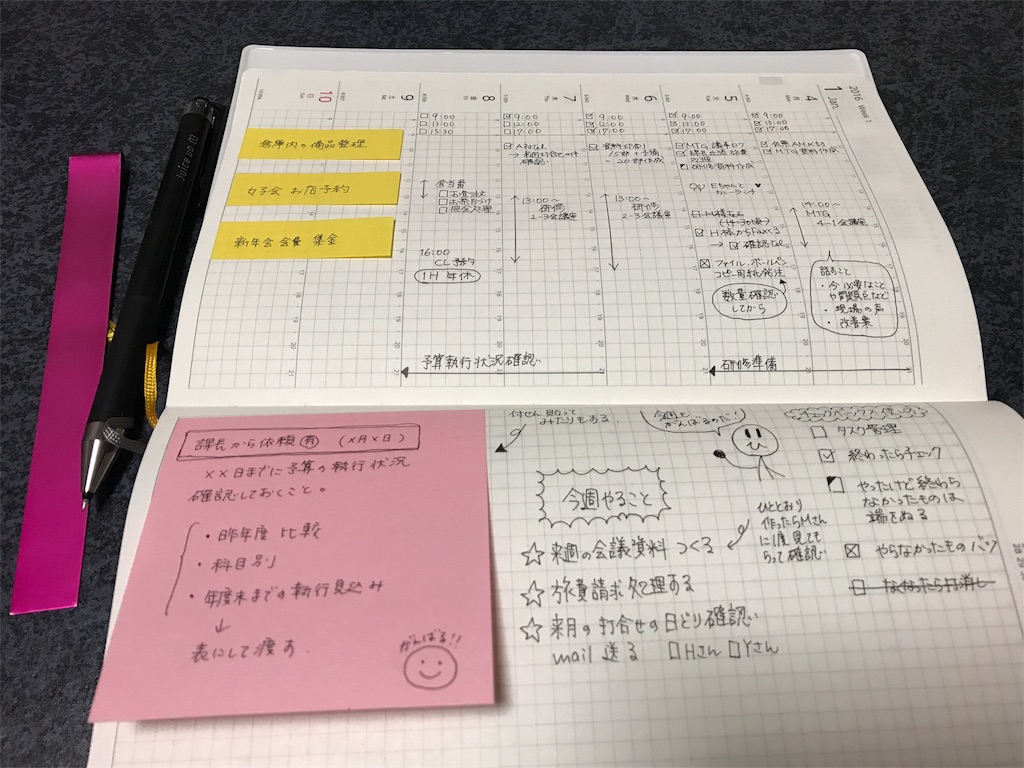 2016 Week 1
1 Jan.
4
月
5
火
6
水
7
木
8
金
9
土
10
日
☑ 9:00
☑ 13:00
☑ 17:00
☑ MTG資料作成
14:00〜
MTG
4-1会議室
話すこと
・今必要なこと
や問題点など
・現場の声
・改善案
☑ 9:00
☑ 13:00
☑ 17:00
研修資料作成
カレーランチ
☑ H様からFaxくる
→ ☑ 確認tel
☒ ファイル、ボールペン
コピー用紙発注
数量確認
してから
研修準備
☑ 9:00
☑ 12:00
☑ 17:00
13:00〜
研修
2-3会議室
☑ 9:00
☑ 12:00
☑ 17:00
☑ A社tel
→ 来週打合せの件
確認
13:00〜
研修
2-3会議室
□ 9:00
□ 13:00
□ 15:30
16:00
CL予約
1H 年休
予算執行状況確認
倉庫内の備品整理
女子会 お店予約
新年会会費 集金
Juice up 03
課長から依頼 有 (×月×日)
××日までに予算の執行状況
確認しておくこと。
・昨年度 比較
・科目別
・年度末までの執行見込み
↓
表にして渡す.
がんばる!!
付せん貼って
みたりもする
今週も
がんばるのだ!
今週やること
☆ 来週の会議資料 つくる
☆ 旅費請求処理する
☆ 来月の打合せの日どり確認
mail 送る □Hさん □Yさん
ひととおり
作ったらMさん
に1度見ても
らって確認
チェックボックスの使い方
□ タスク管理
☑ 終わったらチェック
やったけど終わら
なかったものは
端をぬる
☒ やらなかったもの バツ
□ なくなったら打消し